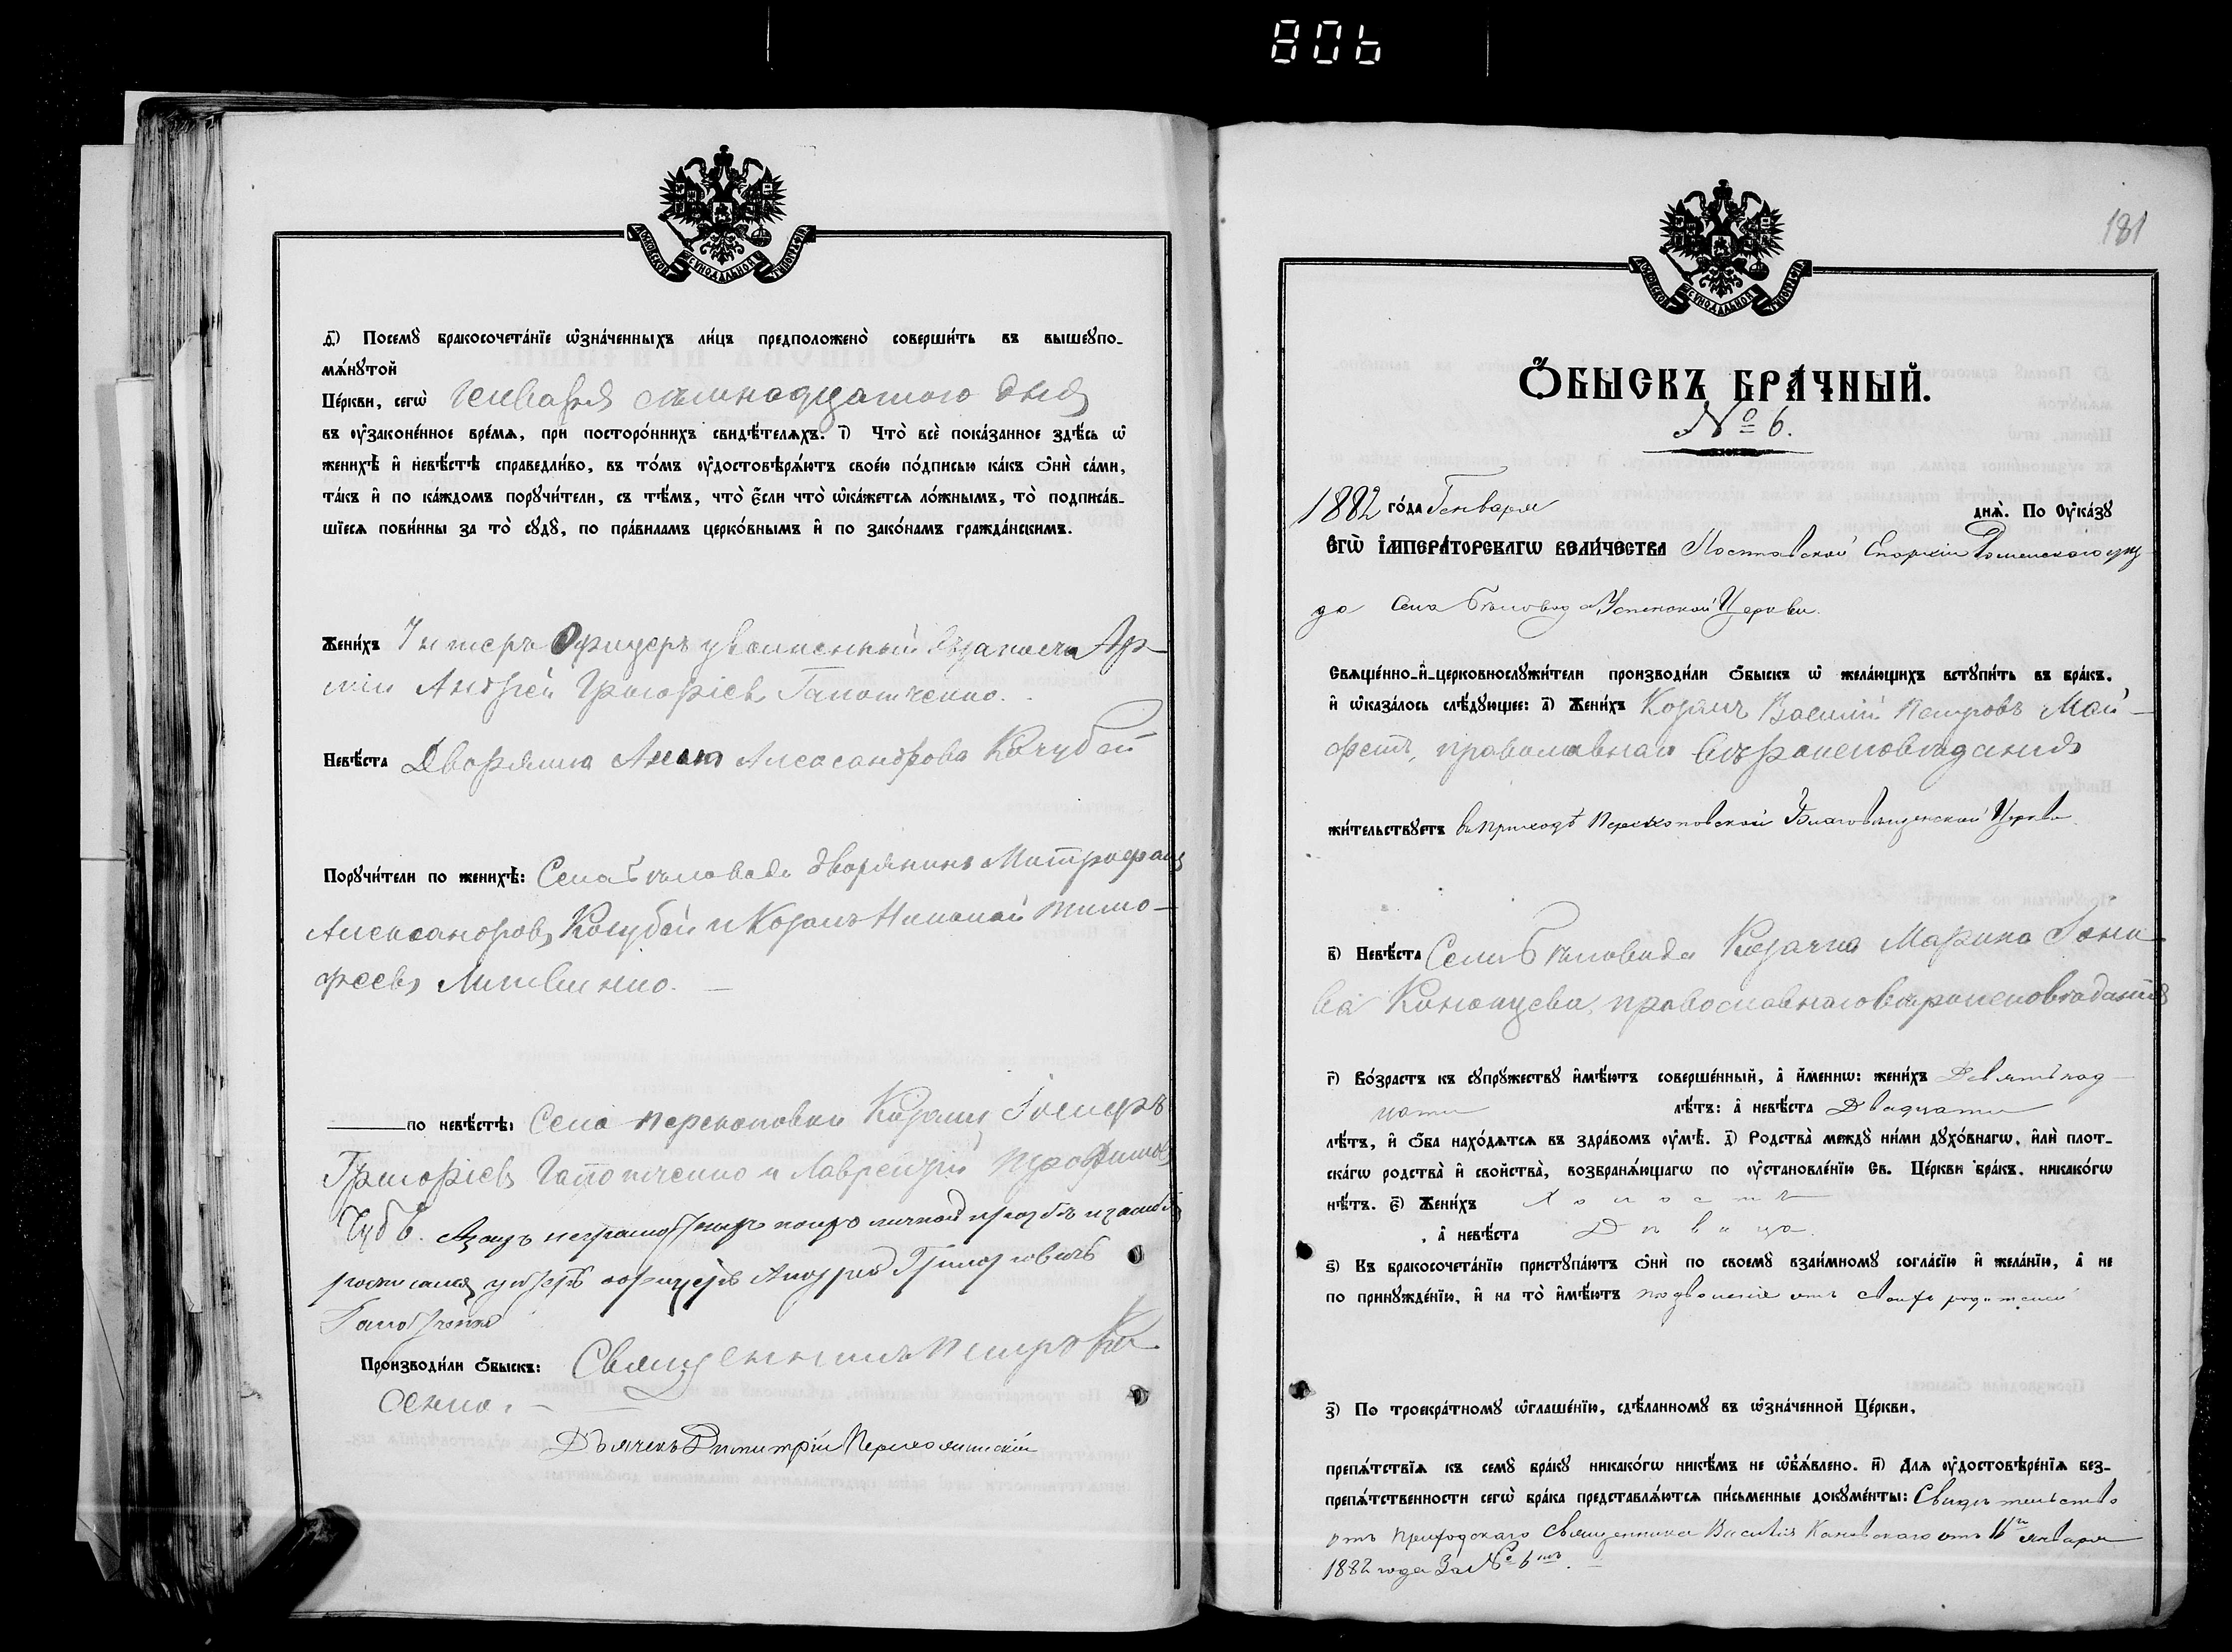 806
МОСКОВСКОЙ СѴНОДАЛЬНОЙ ТИПОГРАФІИ
д҃) Посемꙋ бракосочета́нїе ѡ҆зна́ченныхъ ли́цъ предположено̀ соверши́ть въ вышеꙋпо-
мѧ́нꙋтой
Це́ркви, сегѡ̀ Генваря семнадцатого дня
въ ᲂу҆зако́ненное вре́мѧ, прѝ посторо́ннихъ свидѣ́телѧхъ. і҃) Что̀ всѐ пока́занное здѣ́сь ѡ҆
женихѣ̀ и҆ невѣ́стѣ справедли́во, въ то́мъ ᲂу҆достовѣрѧ́ютъ свое́ю по́дписью ка́къ ѻ҆нѝ са́ми,
та́къ и҆ по ка́ждомъ порꙋчи́тели, съ тѣ́мъ, что̀ є҆́сли что̀ ѡ҆ка́жетсѧ ло́жнымъ, то̀ подписа́в-
шїесѧ пови́нны за то̀ сꙋдꙋ̀, по пра́виламъ церко́внымъ и҆ по зако́намъ гражда́нскимъ.
Жени́хъ Унтеръ Офицеръ уволенный въ запасъ Ар-
міи Андрей Григоріевъ Гапотченко.
Невѣ́ста Дворянка Анна Александрова Кочубей
Порꙋчи́тели по женихѣ̀: Села Бѣловода дворянинъ Митрофанъ
Александровъ Кочубей и Козакъ Николай Тимо-
феевъ Литвиненко.
по невѣ́стѣ: Села Перекоповки Козаки Іосифъ
Григоріевъ Гапотченко и Лаврентій Трофимовъ
Чубъ. а за ихъ неграмотныхъ по ихъ личной прозбѣ и за себя
росписался унтеръ офицеръ Андрей Григоріевичъ
Гапотченко
Производи́ли ѻ҆́быскъ: Священникъ Петръ Ки-
сенко.
Дьячекъ Димитрій
181
МОСКОВСКОЙ СѴНОДАЛЬНОЙ ТИПОГРАФІИ
Ѻ҆́БЫСКЪ БРА́ЧНЫЙ.
№ 6.
1882 го́да Генваря днѧ̀. По Оу҆ка́зꙋ
Є҆ГѠ̀ І҆МПЕРА́ТОРСКАГѠ ВЕЛИ́ЧЕСТВА Полтавской Епархіи Роменскаго уѣз-
да села Бѣловод Успенской Церкви.
Свѧще́нно-и҆-церковнослꙋжи́тели производи́ли ѻ҆́быскъ ѡ҆ жела́ющихъ встꙋпи́ть въ бра́къ.
и҆ ѡ҆каза́лось слѣ́дꙋющее: а҃) Жени́хъ Козакъ Василій Петровъ Май-
фетъ, православнаго вѣроисповѣданія
жи́тельствꙋетъ въ приходѣ Перекоповской Благовѣщенской Церкви.
в҃) Невѣ́ста Села Бѣловода Козачка Марина Іоки-
ва Конопцева, православнаго вѣроисповѣданія
г҃) Во́зрастъ къ сꙋпрꙋ́жествꙋ и҆мѣ́ютъ соверше́нный, а҆ и҆́меннѡ: жени́хъ Девятнад-
цати лѣ́тъ: а҆ невѣ́ста Двадцати
лѣ́тъ, и҆ ѻ҆́ба нахо́дѧтсѧ въ здра́вомъ ᲂу҆мѣ̀. д҃) Родства̀ междꙋ̀ ни́ми дꙋхо́внагѡ, и҆лѝ плот-
ска́гѡ родства̀ и҆ свойства̀, возбранѧ́ющагѡ по ᲂу҆становле́нїю Св. Це́ркви бра́къ, никако́гѡ
нѣ́тъ. є҃) Жени́хъ Холостъ
, а҆ невѣ́ста Дѣвица.
ѕ҃) Къ бракосочета́нїю пристꙋпа́ютъ ѻ҆нѝ по своемꙋ̀ взаи́мномꙋ согла́сїю и҆ жела́нїю, а҆ не
по принꙋжде́нїю, и҆ на то̀ и҆мѣ́ютъ позволеніе отъ своихъ родителей
з҃) По троекра́тномꙋ ѡ҆глаше́нїю, сдѣ́ланномꙋ въ ѡ҆зна́ченной Це́ркви,
препѧ́тствїѧ къ семꙋ̀ бра́кꙋ никако́гѡ никѣ́мъ не ѡ҆б̾ѧ́влено. и҃) Длѧ ᲂу҆достовѣре́нїѧ без-
препѧ́тственности сегѡ̀ бра́ка представлѧ́ютсѧ пи́сьменные докꙋме́нты: Свидѣтельство
отъ приходскаго священника Василія Каневскаго отъ 16го января
1882 года За № 6мъ.